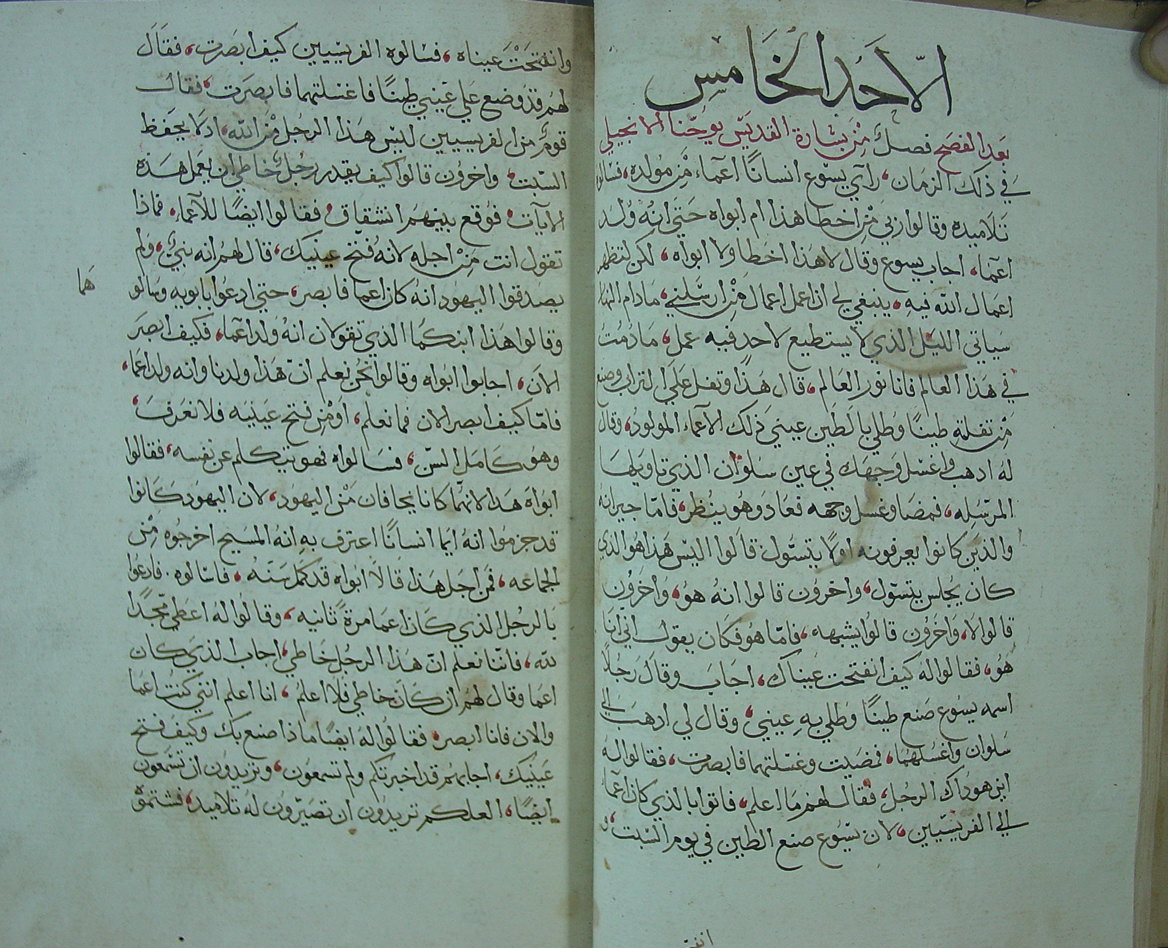 الاحد الخامس
بعد الفصح فصل من بشارة القديس يوحنا الانجيلي
في ذلك الزمان، رآي يسوع انسانًا اعماء من مولده، فسالوا
تلاميده وقالوا ربي من اخطا هذا ام ابواه حتي انه ولد
اعما، اجاب يسوع وقال لا هذا اخطا ولا ابواه، لكن لتظهر
اعمال الله فيه، ينبغي لي ان اعمل اعمال من ارسلني، مادام النهار
سياتي الليل الذي لا يستطيع لاحد فيه عمل، ما دمت
في هذا العالم فانا نور العالم، قال هذا وتفل علي التراب وصنع
من تفلته طينًا وطلي بالطين عيني ذلك الاعماء المولود، وقال
له ادهب واغسل وجهك في عين سلوان الذي تاويلها
المرسله، فمضا وغسل وجهه فعاد وهو ينظر، فاما جيرانه
والذين كانوا يعرفونه اولًا يتسول قالوا اليس هذا هو الذي
كان يجلس يتسول، واخرون قالوا انه هو، واخرون
قالوا لا، واخرون قالوا يشبهه، فاما هو فكان يقول اني انا
هو، فقالوا له كيف انفتحت عيناك، اجاب وقال رجلًا
اسمه يسوع صنع طينًا وطلي به عيني، وقال لي ادهب الي
سلوان واغسلهما، فمضيت وغسلتهما فابصرت، فقالوا له
اين هو داك الرجل، فقال لهم ما اعلم، فاتوا بالذي كان اعماء
الي الفريسيين، لان يسوع صنع الطين في يوم السبت،
وانفتحت عيناه، فسالوه الفريسيين كيف ابصرت، فقال
لهم قد وضع علي عيني طينًا فاغسلتهما فابصرت، فقال
قوم من الفريسيين ليس هذا الرجل من الله، اد لا يحفظ
السبت، واخرون قالوا كيف يقدر رجل خاطي ان يعمل هذه
الايات، فوقع بينهم انشقاق، فقالوا ايضًا للاعماء، فماذا
تقول انت من اجله لانه فتح عينيك، قال لهم انه نبي، ولم
يصدقوا اليهود انه كان اعما فابصر، حتي ادعوا بابويه وسالو
هما
وقالوا هذا ابنكما الذي تقولان انه ولد اعما، فكيف ابصر
الان، اجابوا ابواه وقالوا نحن نعلم ان هذا ولدنا وانه ولد اعما،
فاما كيف ابصر الان فما نعلم، او من فتح عينيه فلا نعرف،
وهو كامل السن، فسالواه فهو يتكلم عن نفسه، فقالوا
ابواه هدا لانهما كانا يخافان من اليهود، لان اليهود كانوا
قد جزموا انه ايما انسانًا اعترف به انه المسيح اخرجوه من
الجماعه، فمن اجل هذا قالا ابواه قد كمل سنه، فاسالوه، فادعوا
بالرجل الذي كان اعما مرة ثانيه، وقالوا له اعطي مجدًا
لله، فاننا نعلم ان هذا الرجل خاطي، اجاب الذي كان
اعما وقال لهم ان كان خاطي فلا اعلم، انا اعلم انني كنت اعما
والان فانا ابصر، فقالوا له ايضًا ماذا صنع بك وكيف فتح
عينيك، اجابهم قد اخبرتكم ولم تسمعون، وتريدون ان تسمعون
ايضًا، العلكم تريدون ان تصيرون له تلاميد، فشتموه